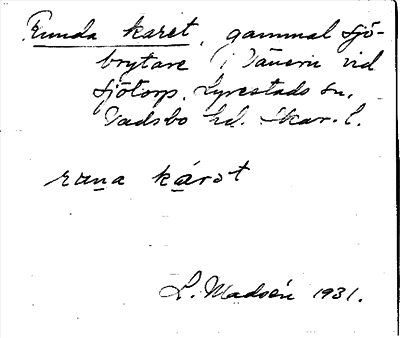 Runda karet, gammal sjö-
brytare i Vänern vid
Sjötorp, Lyrestads sn,
Vadsbo hd. Skar. l.
runa károt
L. Madsén 1931.